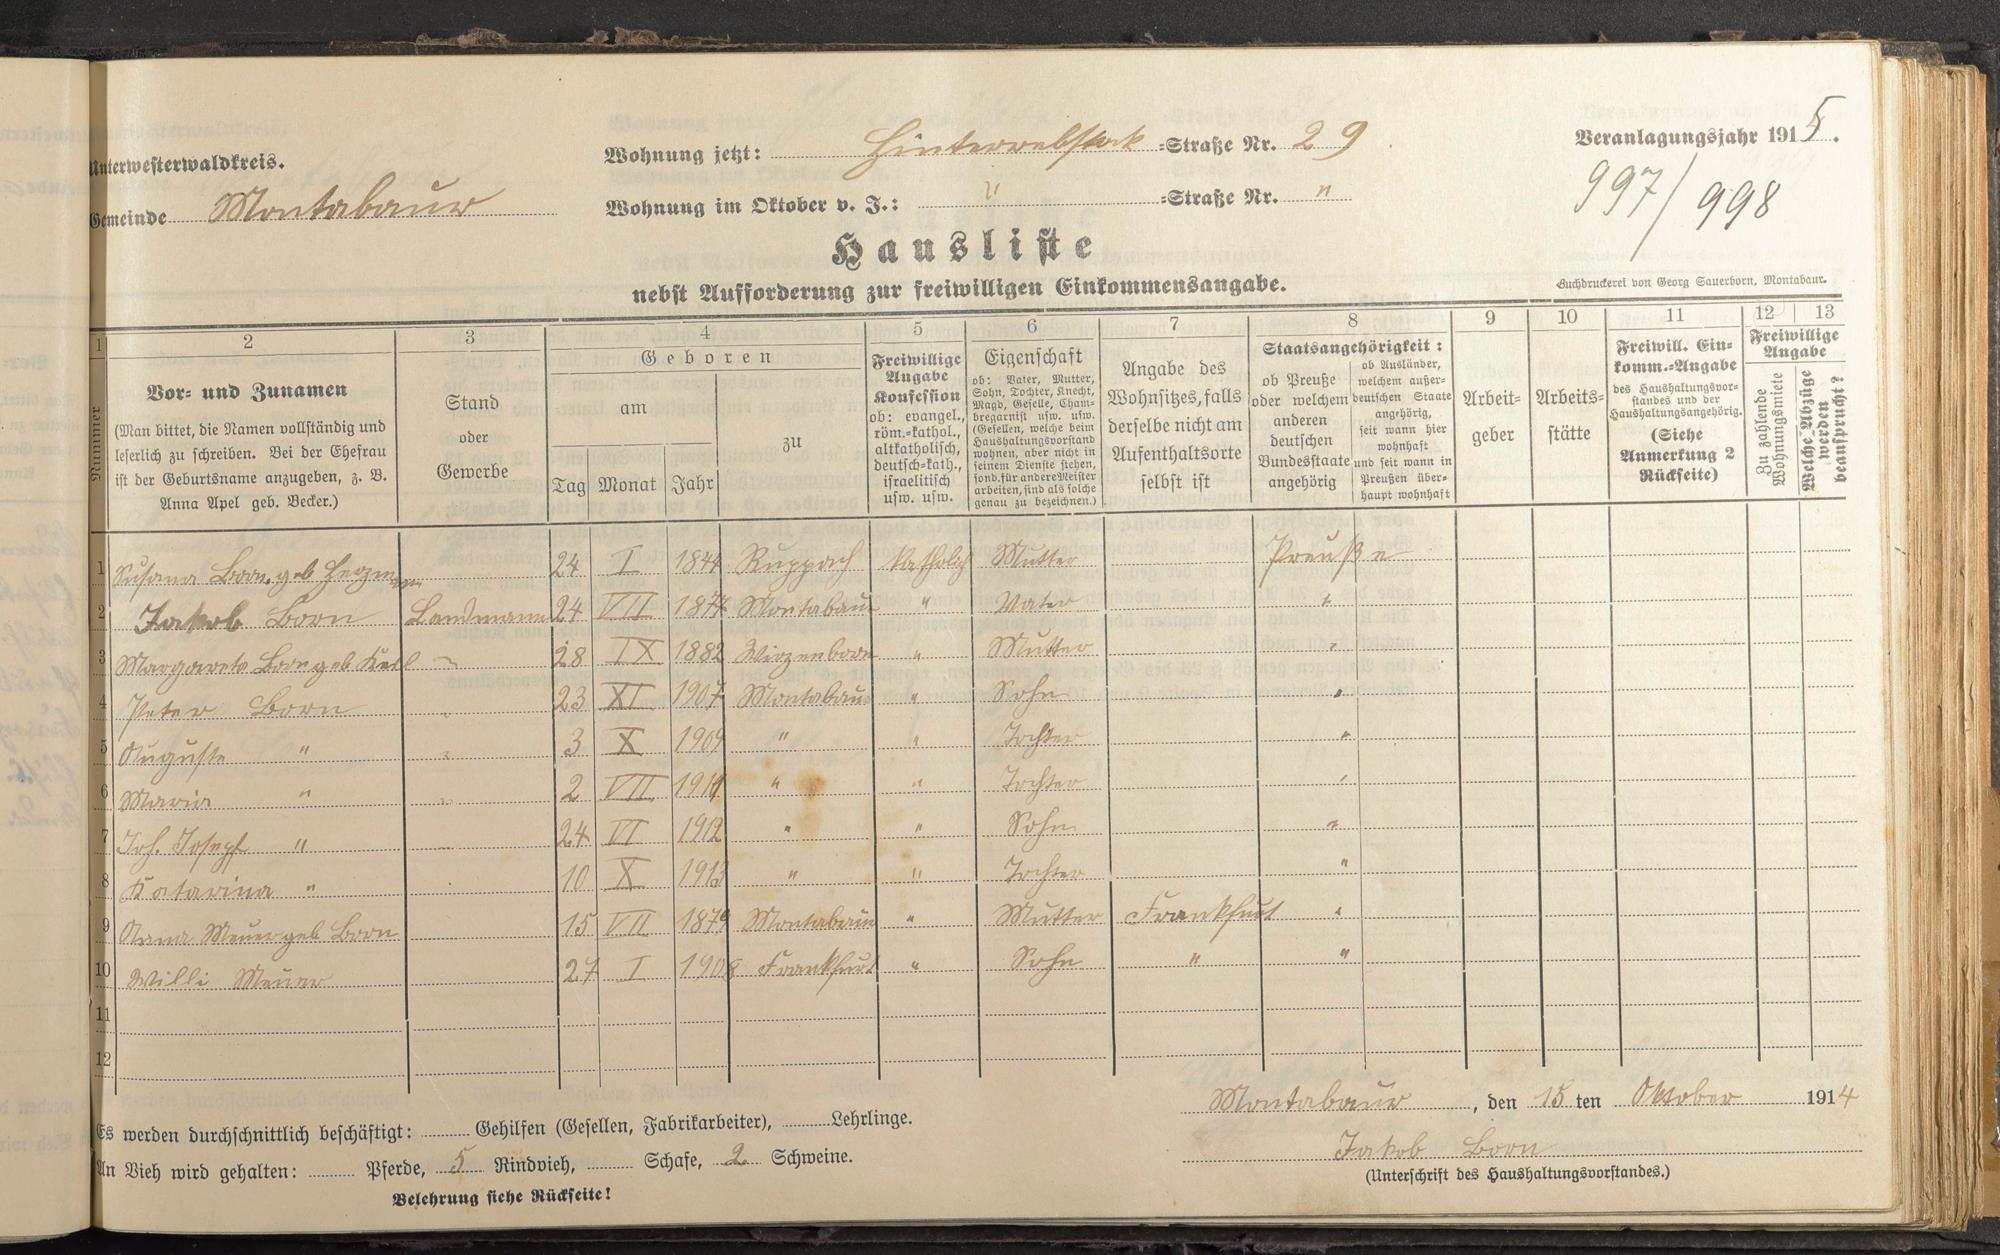 Unterwesterwaldkreis.
Gemeinde Montabaur
Wohnung jetzt: Hinterrebstock -Straße Nr. 29
Wohnung im Oktober v. J.: " -Straße Nr. "
Veranlagungsjahr 1915.
997/998
Hausliste
nebst Aufforderung zur freiwilligen Einkommensangabe.
Buchdruckerei von Georg Sauerborn, Montabaur.
1 2 3 4 5 6 7 8 9 10 11 12 13
Nummer
Vor- und Zunamen
(Man bittet, die Namen vollständig und
leserlich zu schreiben. Bei der Ehefrau
ist der Geburtsname anzugeben, z. B.
Anna Apel geb. Becker.)
Stand
oder
Gewerbe
Geboren
am
Tag Monat Jahr
zu
Freiwillige
Angabe
Konfession
ob: evangel.,
röm.-kathol.,
altkatholisch,
deutsch-kath.,
israelitisch
usw. usw.
Eigenschaft
ob: Vater, Mutter,
Sohn, Tochter, Knecht,
Magd, Geselle, Cham-
bregarnist usw. usw.
(Gesellen, welche beim
Haushaltungsvorstand
wohnen, aber nicht in
seinem Dienste stehen,
sond. für andere Meister
arbeiten, sind als solche
genau zu bezeichnen.)
Angabe des
Wohnsitzes, falls
derselbe nicht am
Aufenthaltsorte
selbst ist
Staatsangehörigkeit:
ob Preuße
oder welchem
anderen
deutschen
Bundesstaate
angehörig
ob Ausländer,
welchem außer-
deutschen Staate
angehörig,
seit wann hier
wohnhaft
und seit wann in
Preußen über-
haupt wohnhaft
Arbeit-
geber
Arbeits-
stätte
Freiwill. Ein-
komm.-Angabe
des Haushaltungsvor-
standes und der
Haushaltungsangehörig.
(Siehe
Anmerkung 2
Rückseite)
Freiwillige
Angabe
Zu zahlende
Wohnungsmiete
Welche Abzüge
werden
beansprucht?
1 Susana Born geb 24 I 1844 Ruppach Katholich Mutter Preuße
2 Jakob Born Landmann 24 VII 1874 Montabaur " Vater "
3 Margarete Born geb Keil " 28 IX 1882 Wirzenborn " Mutter "
4 Peter Born " 23 XI 1907 Montabaur " Sohn "
5 Auguste " " 3 X 1909 " " Tochter "
6 Maria " " 2 VII 1911 " " Tochter "
7 Joh. Josepf " 24 VI 1912 " " Sohn "
8 Katarina " 10 X 1913 " " Tochter "
9 Anna Meuer geb Born 15 VII 1879 Montabaur " Mutter Frankfurt "
10 Willi Meuer 27 I 1908 Frankfurt " Sohn " "
11
12
Es werden durchschnittlich beschäftigt: Gehilfen (Gesellen, Fabrikarbeiter), Lehrlinge.
An Vieh wird gehalten: Pferde, 5 Rindvieh, Schafe, 2 Schweine.
Belehrung siehe Rückseite!
Montabaur, den 15 ten Oktober 1914
Jakob Born
(Unterschrift des Haushaltungsvorstandes.)